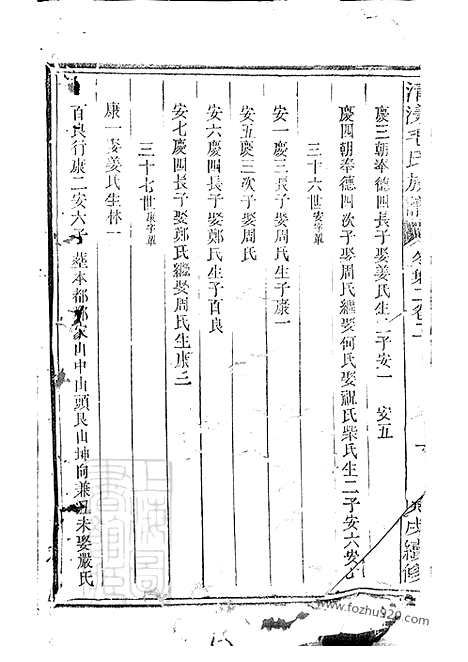 清漾毛氏族譜
慶三朝奉德四長子娶姜氏生二子安一 安五
慶四朝奉德四次子娶周氏繼娶何氏娶祝氏柴氏生二子安六安七
三十六世安字單
安一慶三長子娶周氏生子康一
安五慶三次子娶周氏
安六慶四長子娶鄭氏生子百良
安七慶四長子娶鄭氏繼娶周氏生康三
三十七世康字單
康一娶姜氏生林一
百良行康二安六子塟本都鄭家山中山頭艮山坤向兼丑未娶嚴氏
戌續修
www.fozhu920.com